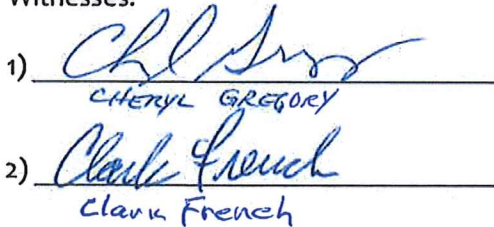 Witnesses:
1)
CHERYL GREGORY
2) Clark French
Clark French